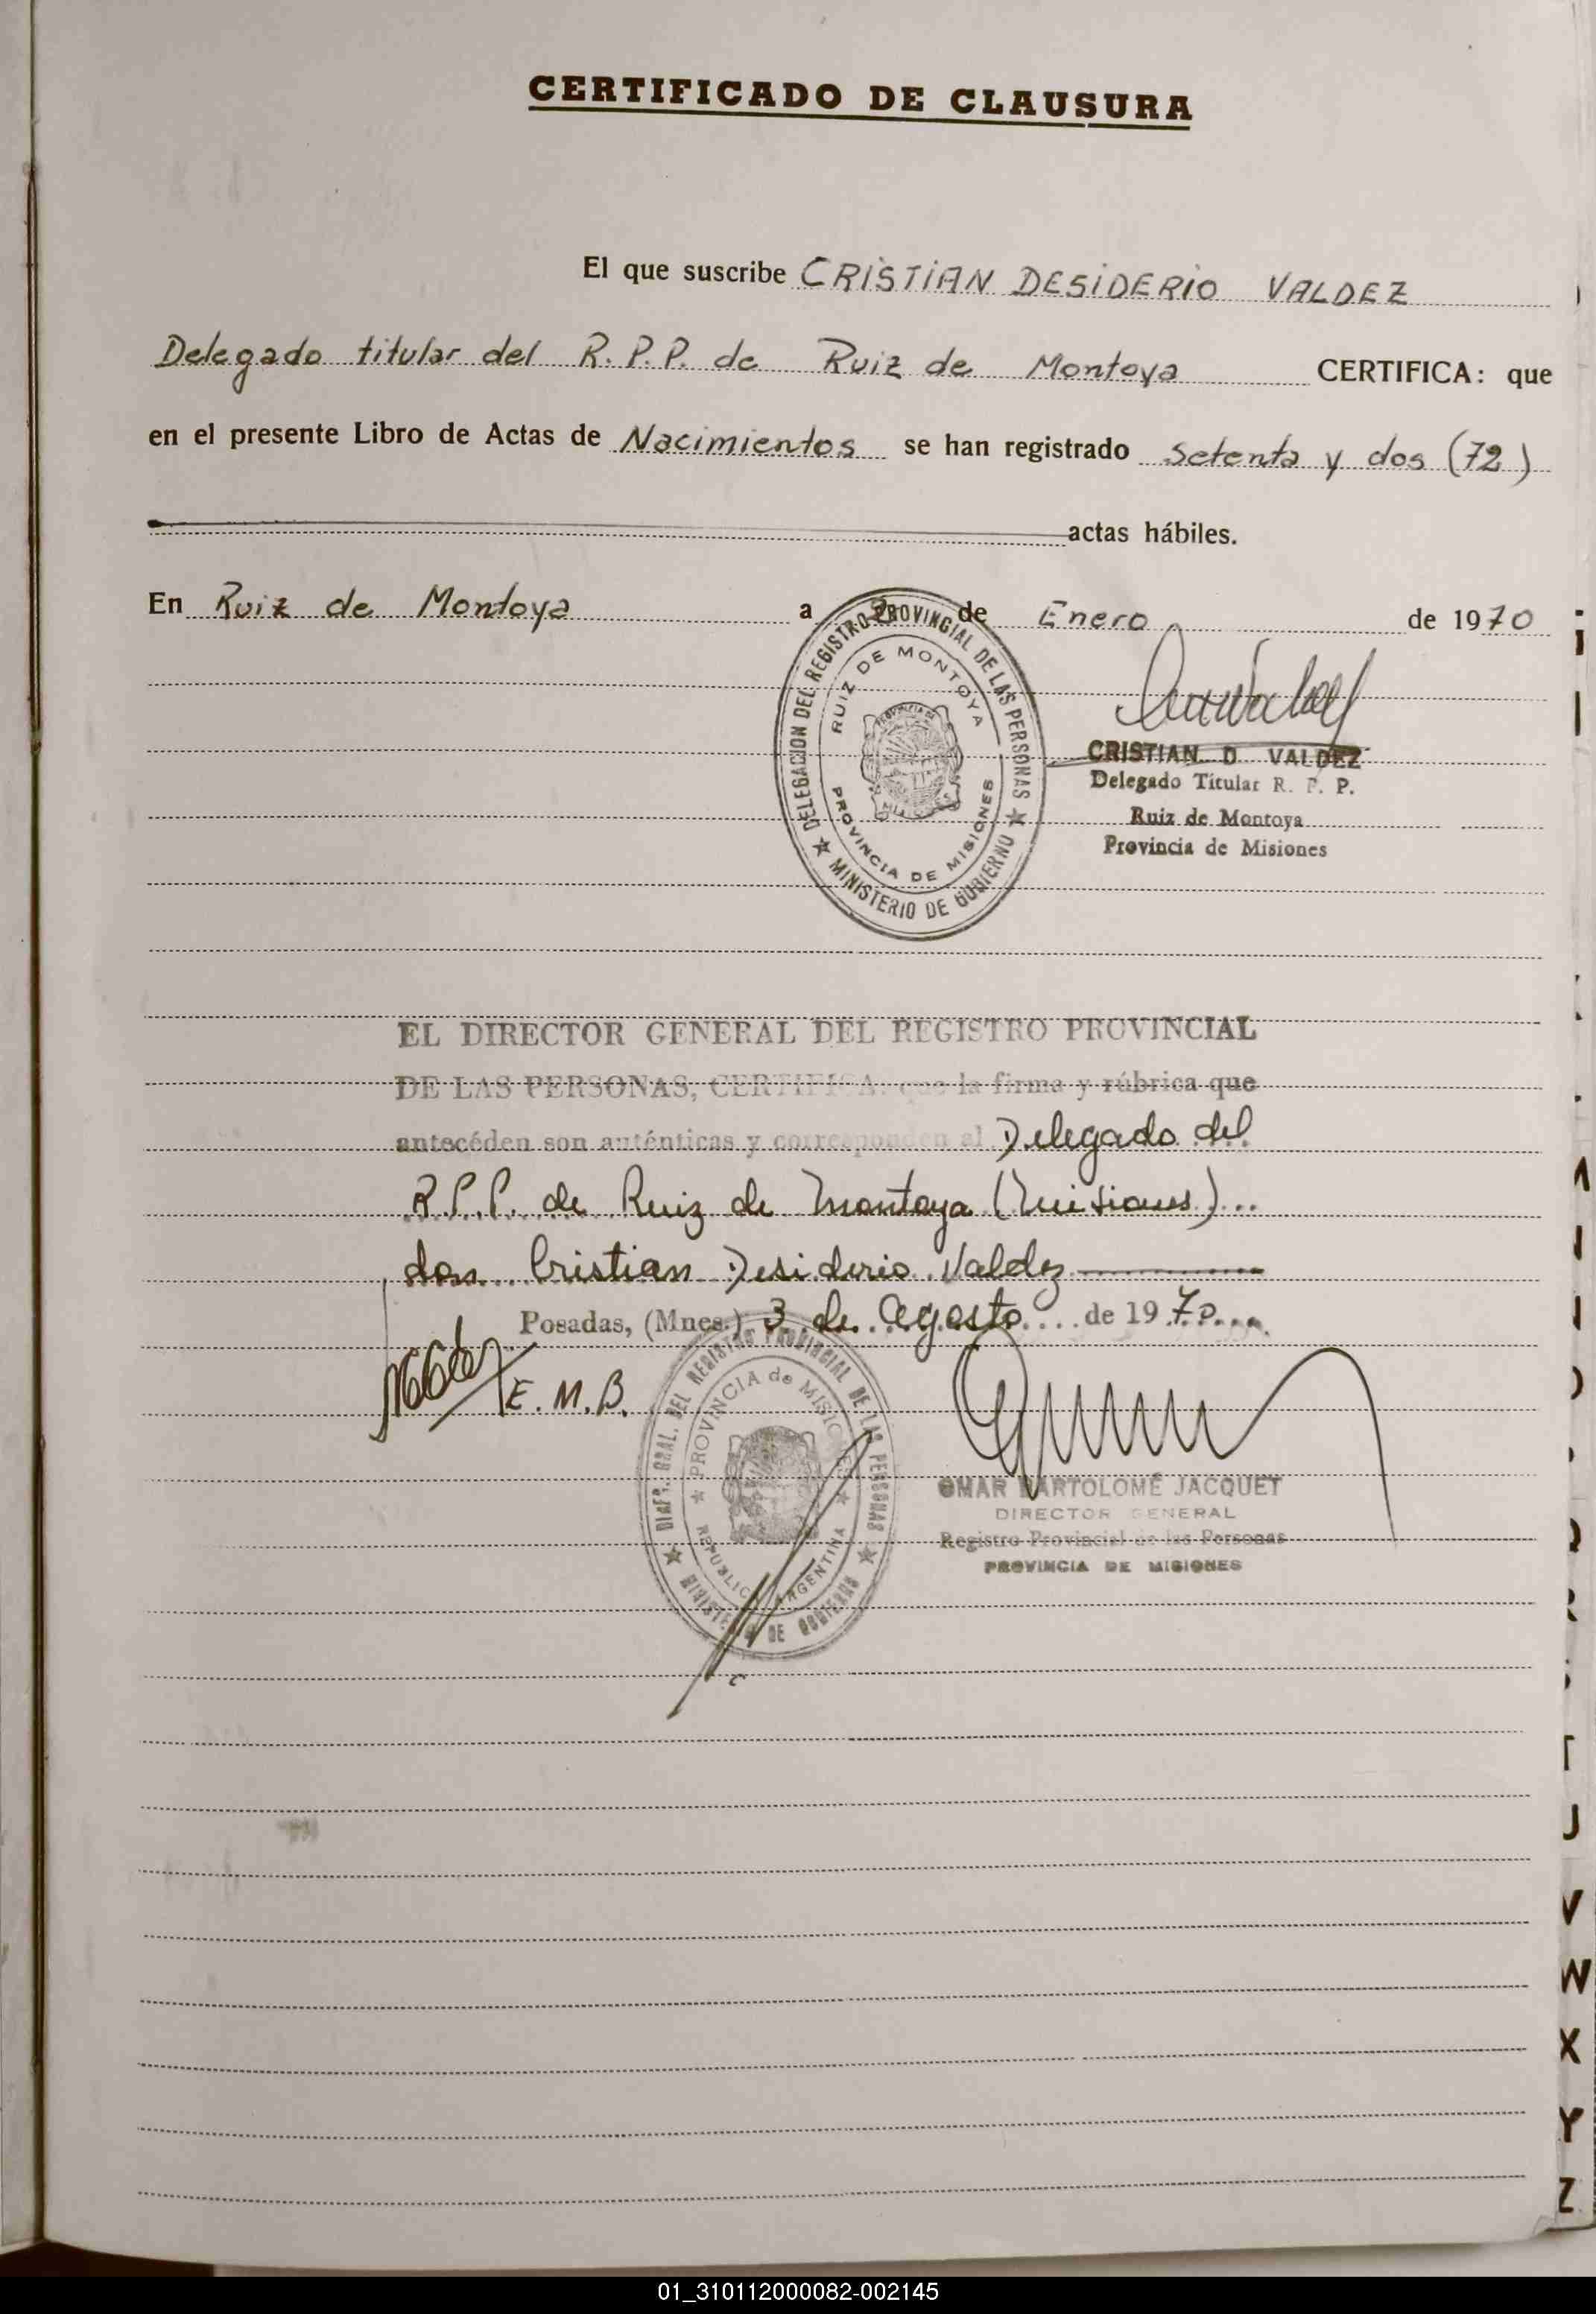 CERTIFICADO DE CLAUSURA
El que suscribe CRISTIAN DESIDERIO VALDEZ
Delegado titular del R. P. P. de Ruiz de Montoya CERTIFICA: que
en el presente Libro de Actas de Nacimientos se han registrado Setenta y dos (72)
actas hábiles.
En Ruiz de Montoya a 2 de Enero de 1970
DELEGACION DEL REGISTRO PROVINCIAL DE LAS PERSONAS
RUIZ DE MONTOYA
PROVINCIA DE MISIONES
★ MINISTERIO DE GOBIERNO ★
CRISTIAN D. VALDEZ
Delegado Titular R. P. P.
Ruiz de Montoya
Provincia de Misiones
EL DIRECTOR GENERAL DEL REGISTRO PROVINCIAL
DE LAS PERSONAS, CERTIFICA: que la firma y rúbrica que
antecéden son auténticas y corresponden al Delegado del
R.P.P. de Ruiz de Montoya (Misiones)...
don Cristian Desiderio Valdez
Posadas, (Mnes.) 3 de Agosto de 1970
E. M. B.
DIREC. GRAL. DEL REGISTRO PROVINCIAL DE LAS PERSONAS
★ PROVINCIA de MISIONES ★
REPUBLICA ARGENTINA
★ MINISTERIO DE GOBIERNO ★
OMAR BARTOLOMÉ JACQUET
DIRECTOR GENERAL
Registro Provincial de las Personas
PROVINCIA DE MISIONES
T
J
V
W
X
Y
Z
01_310112000082-002145